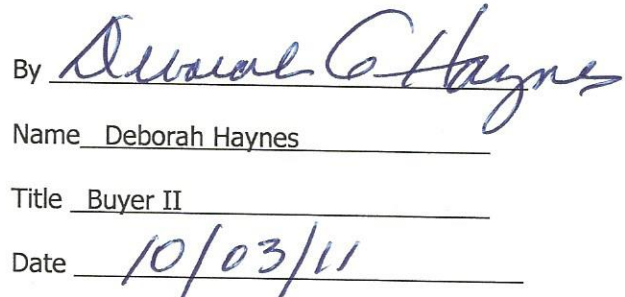 By Deborah G Haynes
Name Deborah Haynes
Title Buyer II
Date 10/03/11